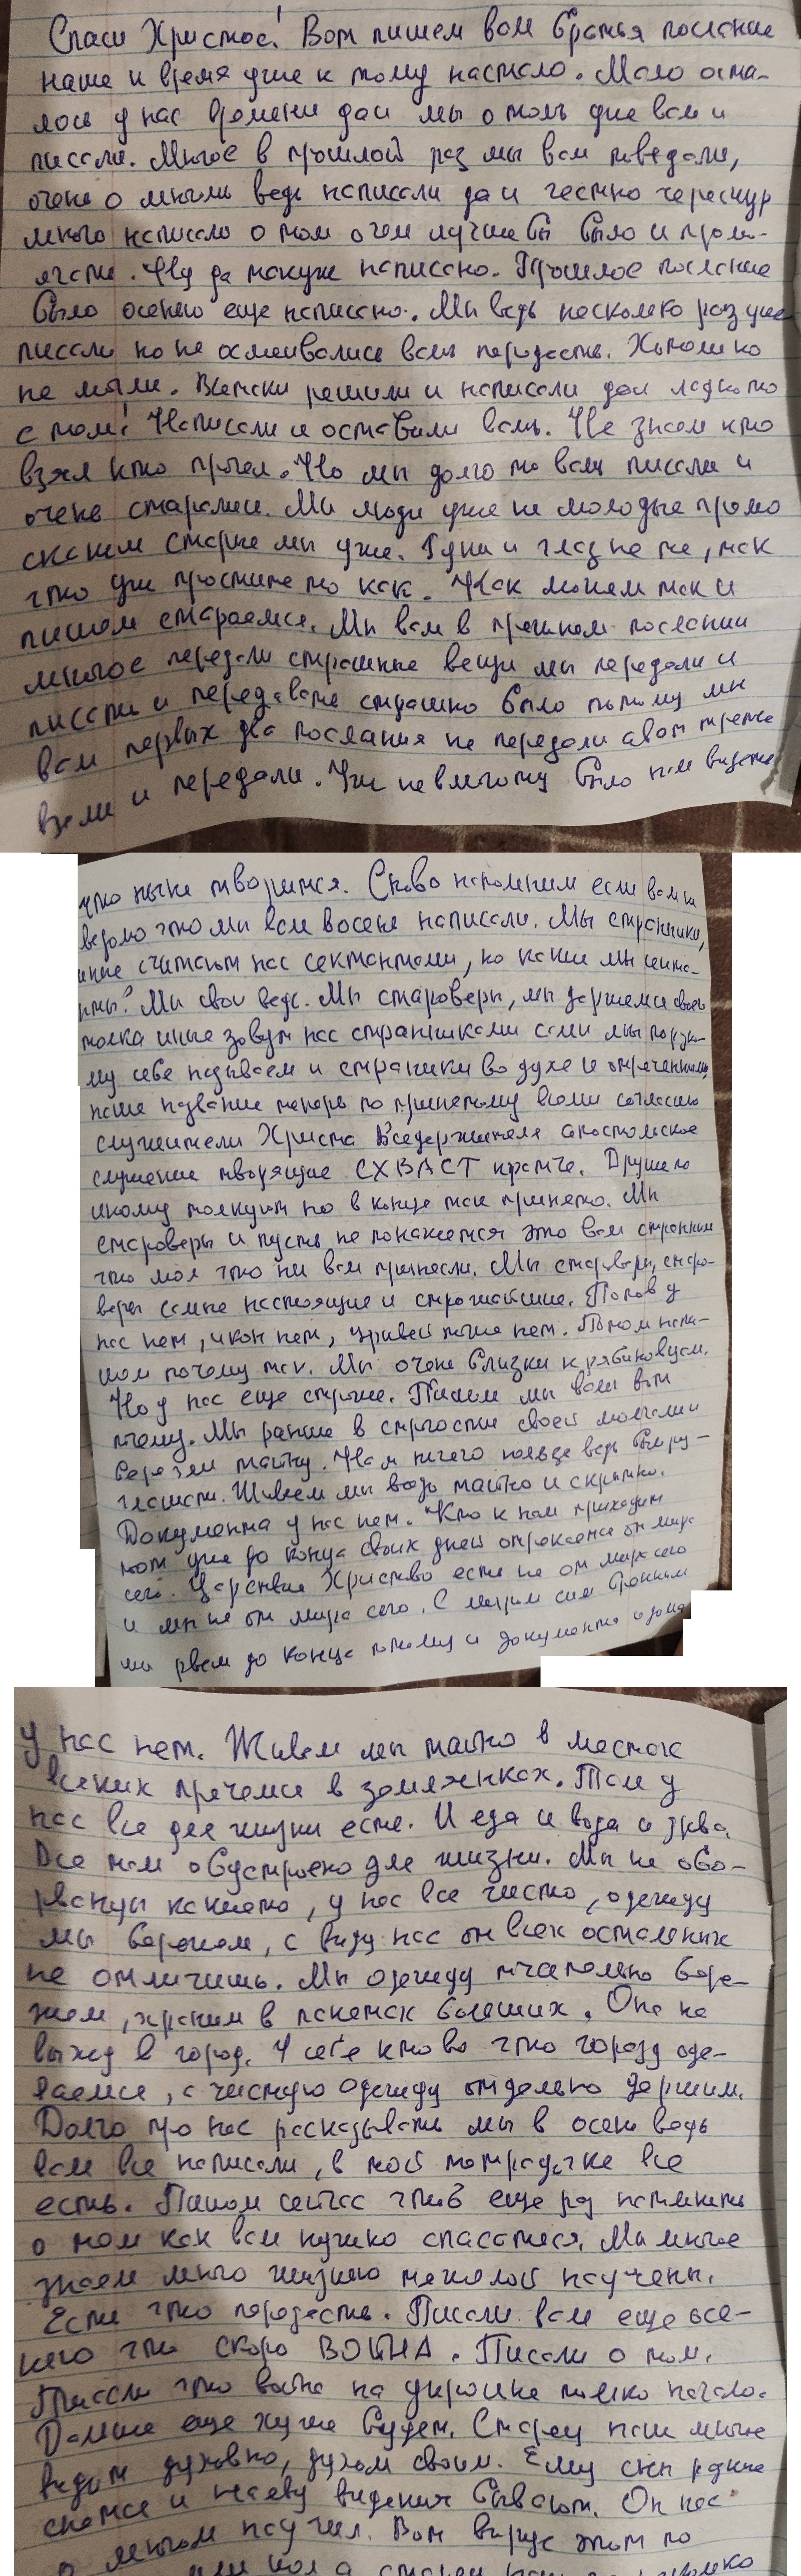 Спаси Христос! Вот пишем вам братья послание
наше и время уже к тому настало. Мало оста-
лось у нас времени даи мы о томъ уже вам и
писали. Многое в прошлой раз мы вам поведали,
очень о многом ведь написали да и честно чересчур
много написали о том о чем лучше бы было и промо-
лчать. Ну да ужъ написано. Прошлое послание
было осенью еще написано. Мы ведь несколько раз уже
писали но не осмеивались вам передать. Хотели но
не могли. Всетски решили и написали даи ладно то
с том! Написали и оставили вам. Не знаем кто
взял кто прочел. Но мы долго то вам писали и
очень старались. Мы люди уже не молодые прямо
скажем старые мы уже. Руки и глаз не те, так
что уж простите то как. Как можем так и
пишем стараемся. Мы вам в прошлом послании
многое передали страшные вещи мы передали и
писать и передавать страшно было потому мы
вам первых два послания не передали а вот третье
взяли и передали. Уж невмоготу было нам видеть
что ныне творится. Снова напомним если вам не
ведомо что мы вам восень написали. Мы странники,
иные считают нас сектантами, но какие мы секта-
нты? Мы свои ведь. Мы староверы, мы держимся своего
толка иные зовут нас странниками сами мы по разно-
му себе называем и странники во духе и отреченными,
наше название теперь по принятому всеми согласию
служители Христа Вседержителя апостольское
служение творящие СХВАСТ кратче. Другие по
иному толкуют но в конце так принято. Мы
староверы и пусть не покажется это вам странным
что мол что мы вам принесли. Мы староверы, старо-
веры самые настоящие и строжайшие. Попов у
нас нет, икон нет, церквей тоже нет. Потом напи-
шем почему так. Мы очень близки к рябиновцам.
Но у нас еще строже. Пишем мы вам вот
почему. Мы раньше в строгости своей молчали и
берегли тайну. Нам нечего
Живем мы ведь тайно и скрытно.
Документа у нас нет. Кто к нам приходит
тот уже до конца своих дней отрекается от мира
сего. Царствие Христово есть не от мира сего
и мы не от мира сего. С миром сим бранным
мы рвем до конца потому и документа и дома
у нас нет. Живем мы тайно в местах
всяких прячемся в землянках. Там у
нас все для жизни есть. И еда и вода и дрова.
Все там обустроено для жизни. Мы не обо-
рванцы какието, у нас все чисто, одежду
мы бережем, с виду нас от всех остальных
не отличишь. Мы одежду тчательно бере-
жем, храним в пакетах больших. Она на
выход в город. У себя кто во что горазд оде-
ваемся, а чистую одежду отдельно держим.
Долго про нас рассказывать мы в осень ведь
вам все написали, в той тетрадочке все
есть. Пишем сейчас чтоб еще раз напомнить
о том как вам нужно спасаться. Мы многое
знаем много жизнью тяжелой научены.
Есть что передать. Писали вам еще все-
него что скоро ВОЙНА. Писали о том.
Писали что война на украине только начало.
Дальше еще хуже будет. Старец наш многое
видит духовно, духом своим. Ему сны разные
снятся и наяву видения бывают. Он нас
многому научил. Вот вирус этот по